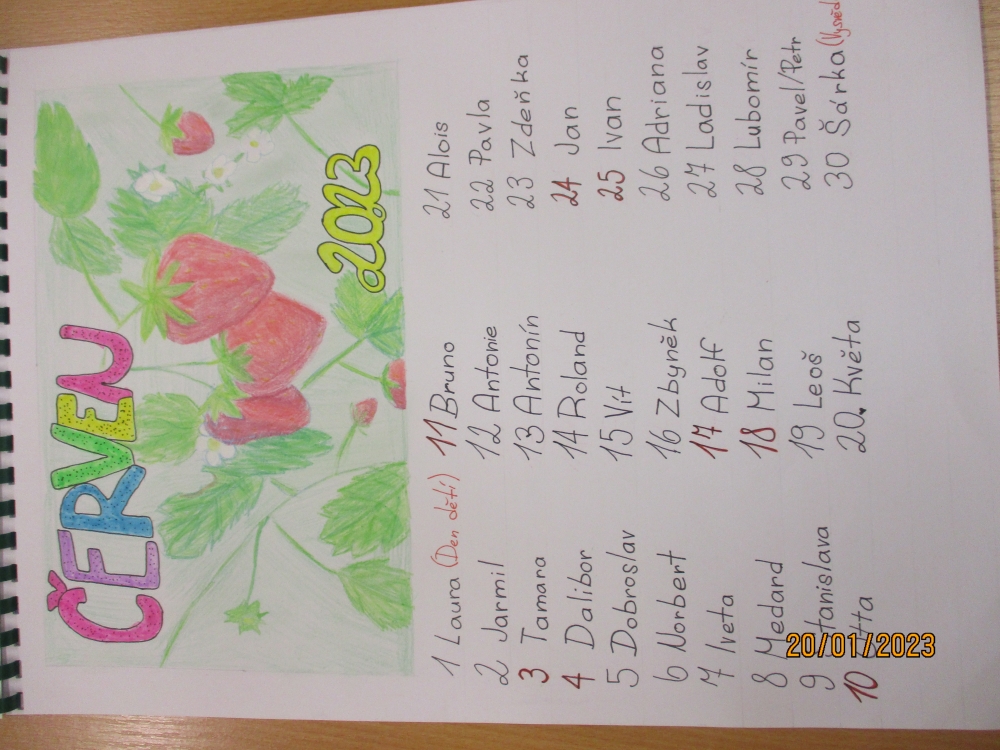 ČERVEN
2023
1 Laura (Den dětí)
2 Jarmil
3 Tamara
4 Dalibor
5 Dobroslav
6 Norbert
7 Iveta
8 Medard
9 Stanislava
10 Otta
11 Bruno
12 Antonie
13 Antonín
14 Roland
15 Vít
16 Zbyněk
17 Adolf
18 Milan
19 Leoš
20. Květa
21 Alois
22 Pavla
23 Zdeňka
24 Jan
25 Ivan
26 Adriana
27 Ladislav
28 Lubomír
29 Pavel/Petr
30 Šárka
20/01/2023